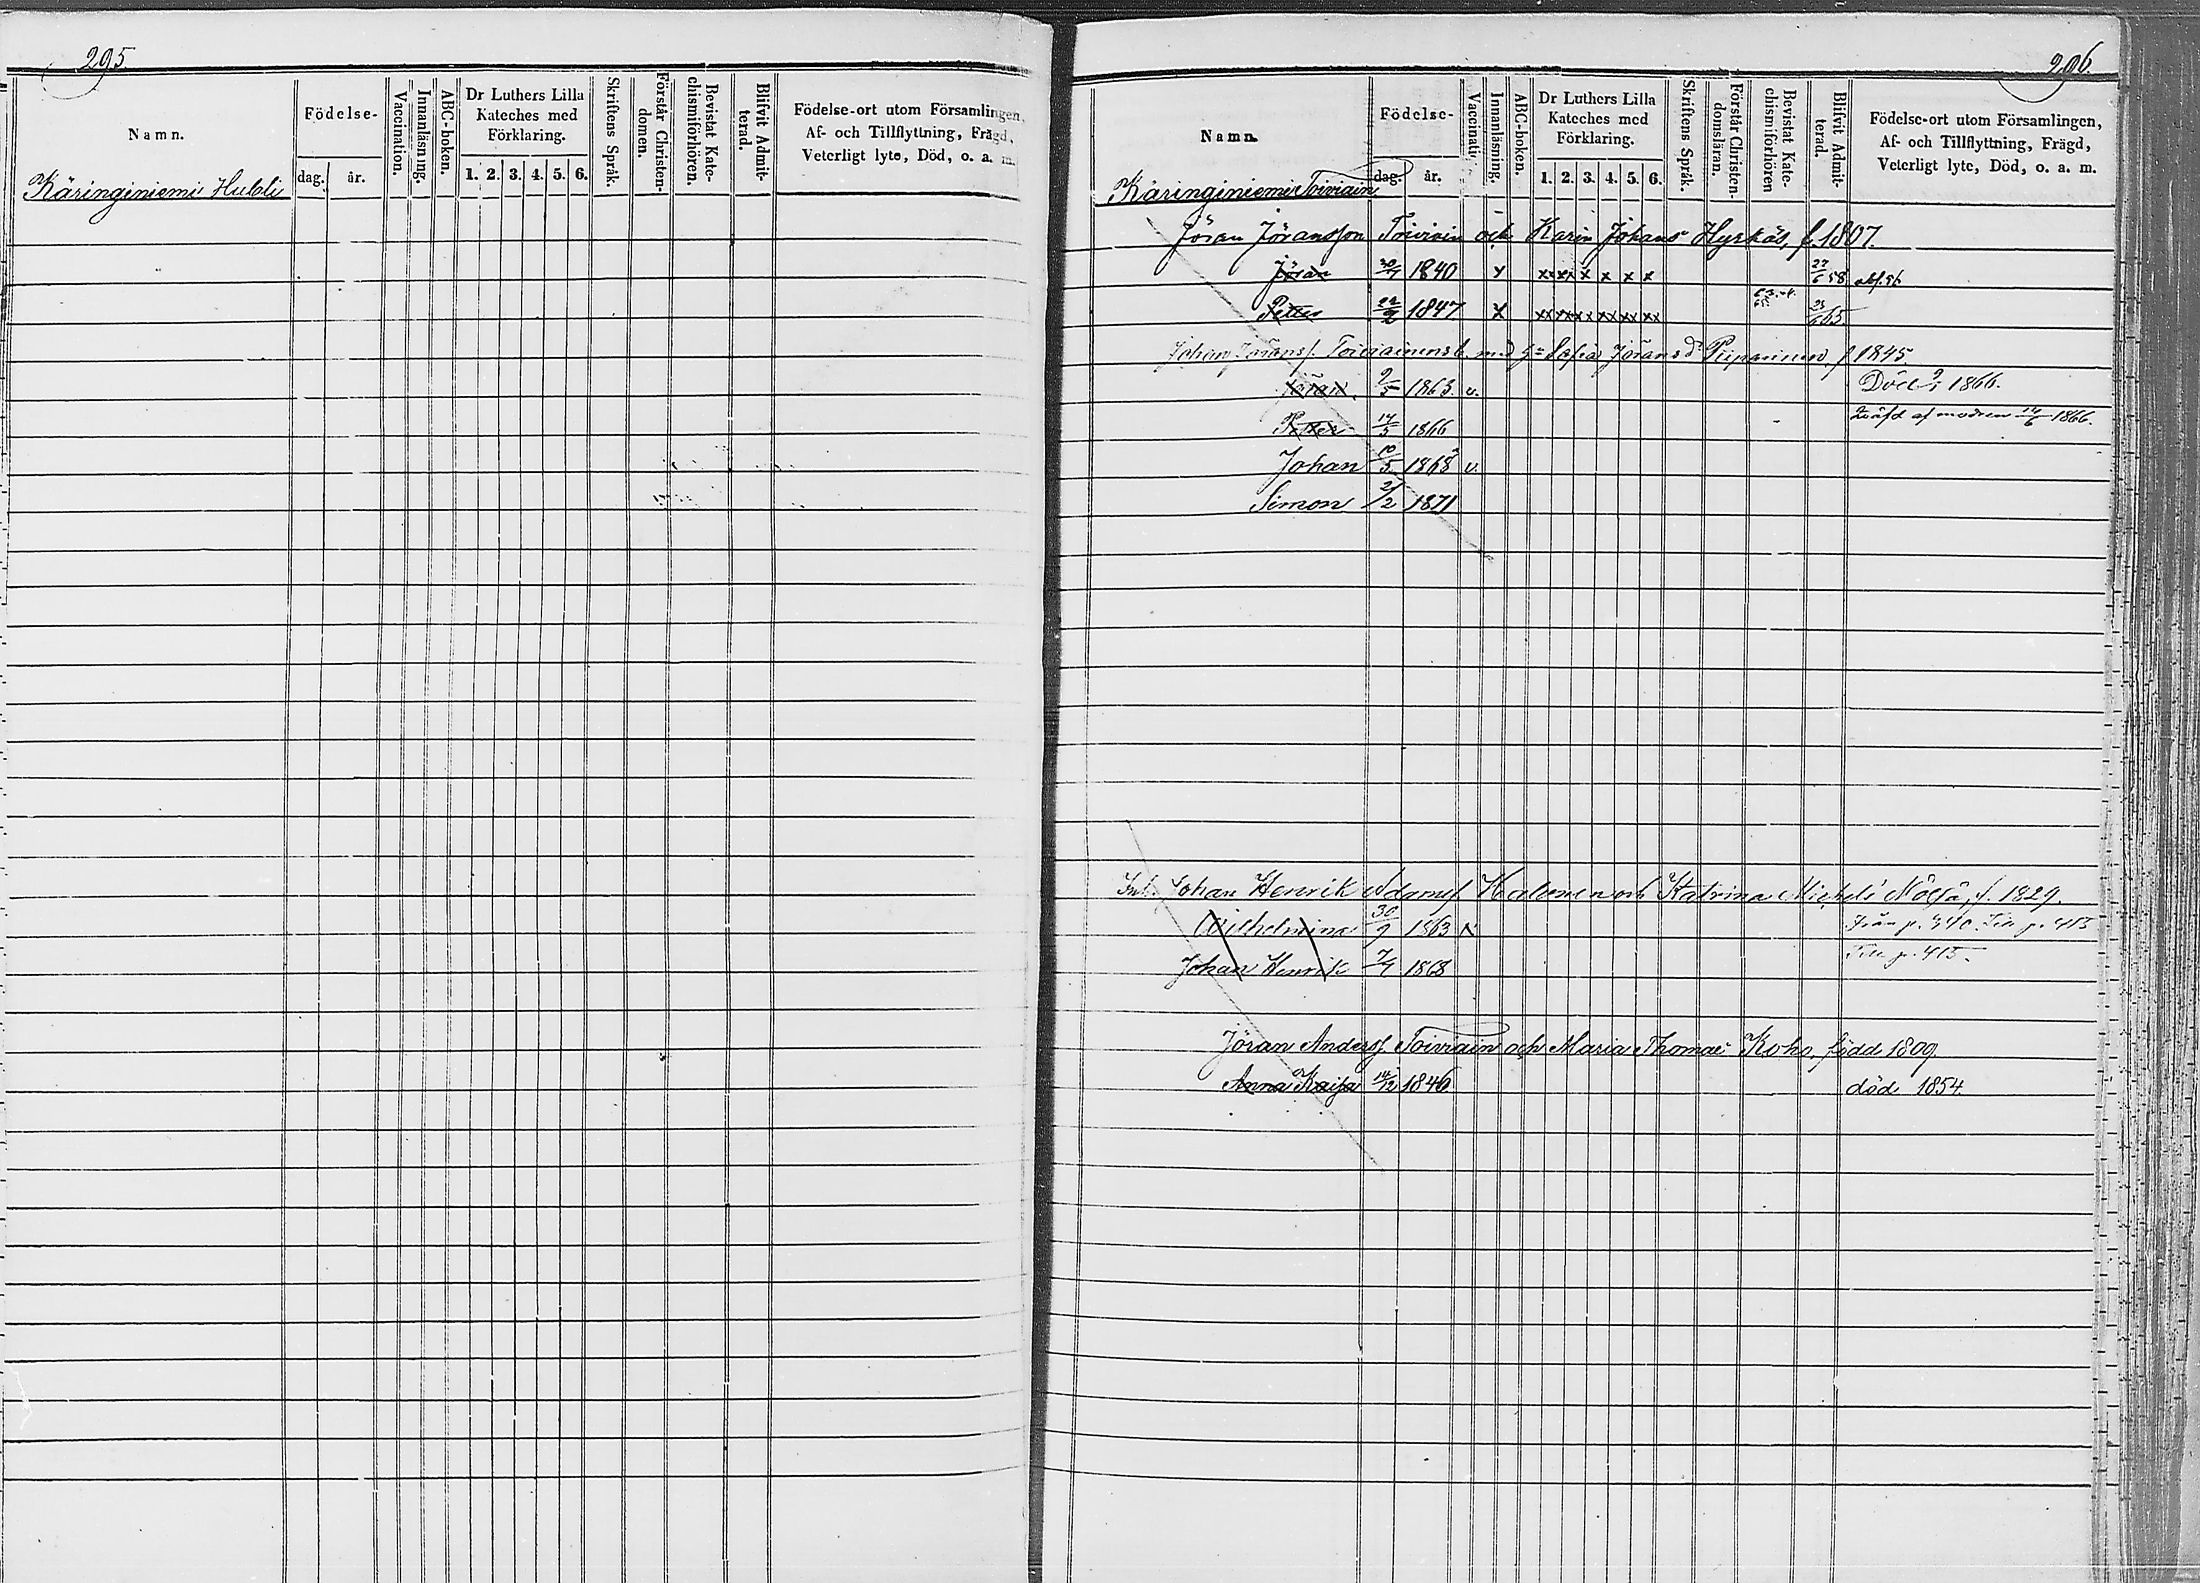 295
Namn.
Födelse-
dag. år.
Vaccination.
Innanläsning.
ABC-boken.
Dr Luthers Lilla
Kateches med
Förklaring.
1. 2. 3. 4. 5. 6.
Skriftens Språk.
Förstår Christen-
domen.
Bevistat Kate-
chismiförhören.
Blifvit Admit-
terad.
Födelse-ort utom Församlingen,
Af- och Tillflyttning, Frägd,
Veterligt lyte, Död, o. a. m.
Käringiniemi Hubli
296.
Namn.
Födelse-
dag. år.
Vaccinati
Innanläsning.
ABC-boken.
Dr Luthers Lilla
Kateches med
Förklaring.
1. 2. 3. 4. 5. 6.
Skriftens Språk.
Förstår Christen-
domsläran.
Bevistat Kate-
chismiförhören
Blifvit Admit-
terad.
Födelse-ort utom Församlingen,
Af- och Tillflyttning, Frägd,
Veterligt lyte, Död, o. a. m.
Käringiniemi Toiviain
Jöran Jöransson Toivain och Karin Johans Hyrkäs, f. 1807.
Jöran 1840 x xx xx x x x x 27/6 58
Petter 22/2 1847 x xx xx xx xx xx xx 65.
Johan Jörans. med Sofia Jörans d. Piiparinen, f 1845.
Jöran 9/5 1863. v. Död 1866.
Petter 14/5 1866 qväfd af modren 14/6 1866.
Johan 10/5 1868 v.
Simon 2/2 1871
Johan Henrik Adamsf. Halonen och Katrina Michels Mölsä, f. 1829.
Wilhelmina 30/9 1863 x Från p. 340. Till p. 415
Johan Henrik 7/4 1868 Till p. 415.
Jöran Anderss Toiviain och Maria Thomae Koho, född 1809.
Anna Kaisa 14/12 1846 död 1854.